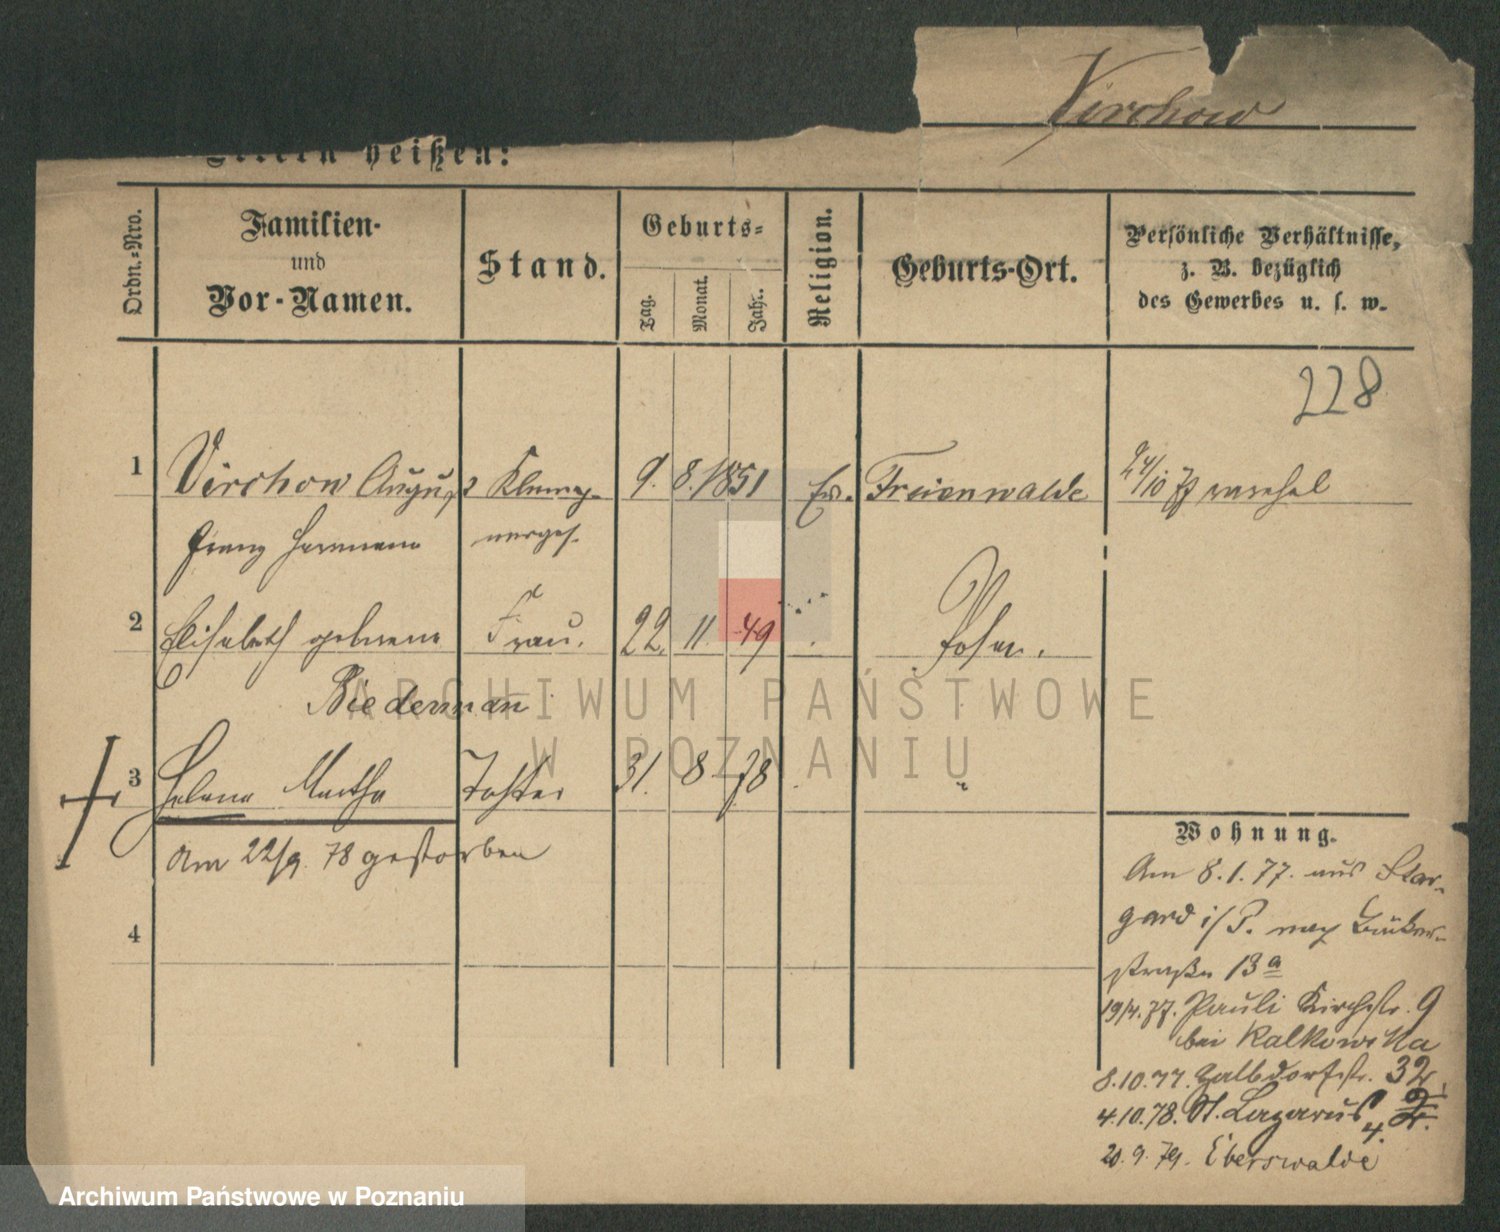 Virchow
Eltern heißen:
Ordn.-Nro.
Familien-
und
Vor-Namen.
Stand.
Geburts-
Tag.
Monat.
Jahr.
Religion.
Geburts-Ort.
Persönliche Verhältnisse,
z. B. bezüglich
des Gewerbes u. s. w.
228
1 Virchow August Klemp- 9. 8. 1851 Ev. Freienwalde 24/10 77
Franz Hermann nerges.
2 Elisabeth geborene Frau. 22. 11 49 Posen.
Biedermann
3 Helene Martha Tochter 31. 8 78 "
Am 22/9. 78 gestorben
4
Wohnung.
Am 8.1.77. aus Star-
gard i/P. nach Bäcker-
straße 13a
19/4.77. Pauli Kirchstr. 9
bei Kalkowska
8.10.77. Halbdorfstr. 32
4.10.78. St. Lazarus
20.9.79. Eberswalde
ARCHIWUM PAŃSTWOWE
W POZNANIU
Archiwum Państwowe w Poznaniu